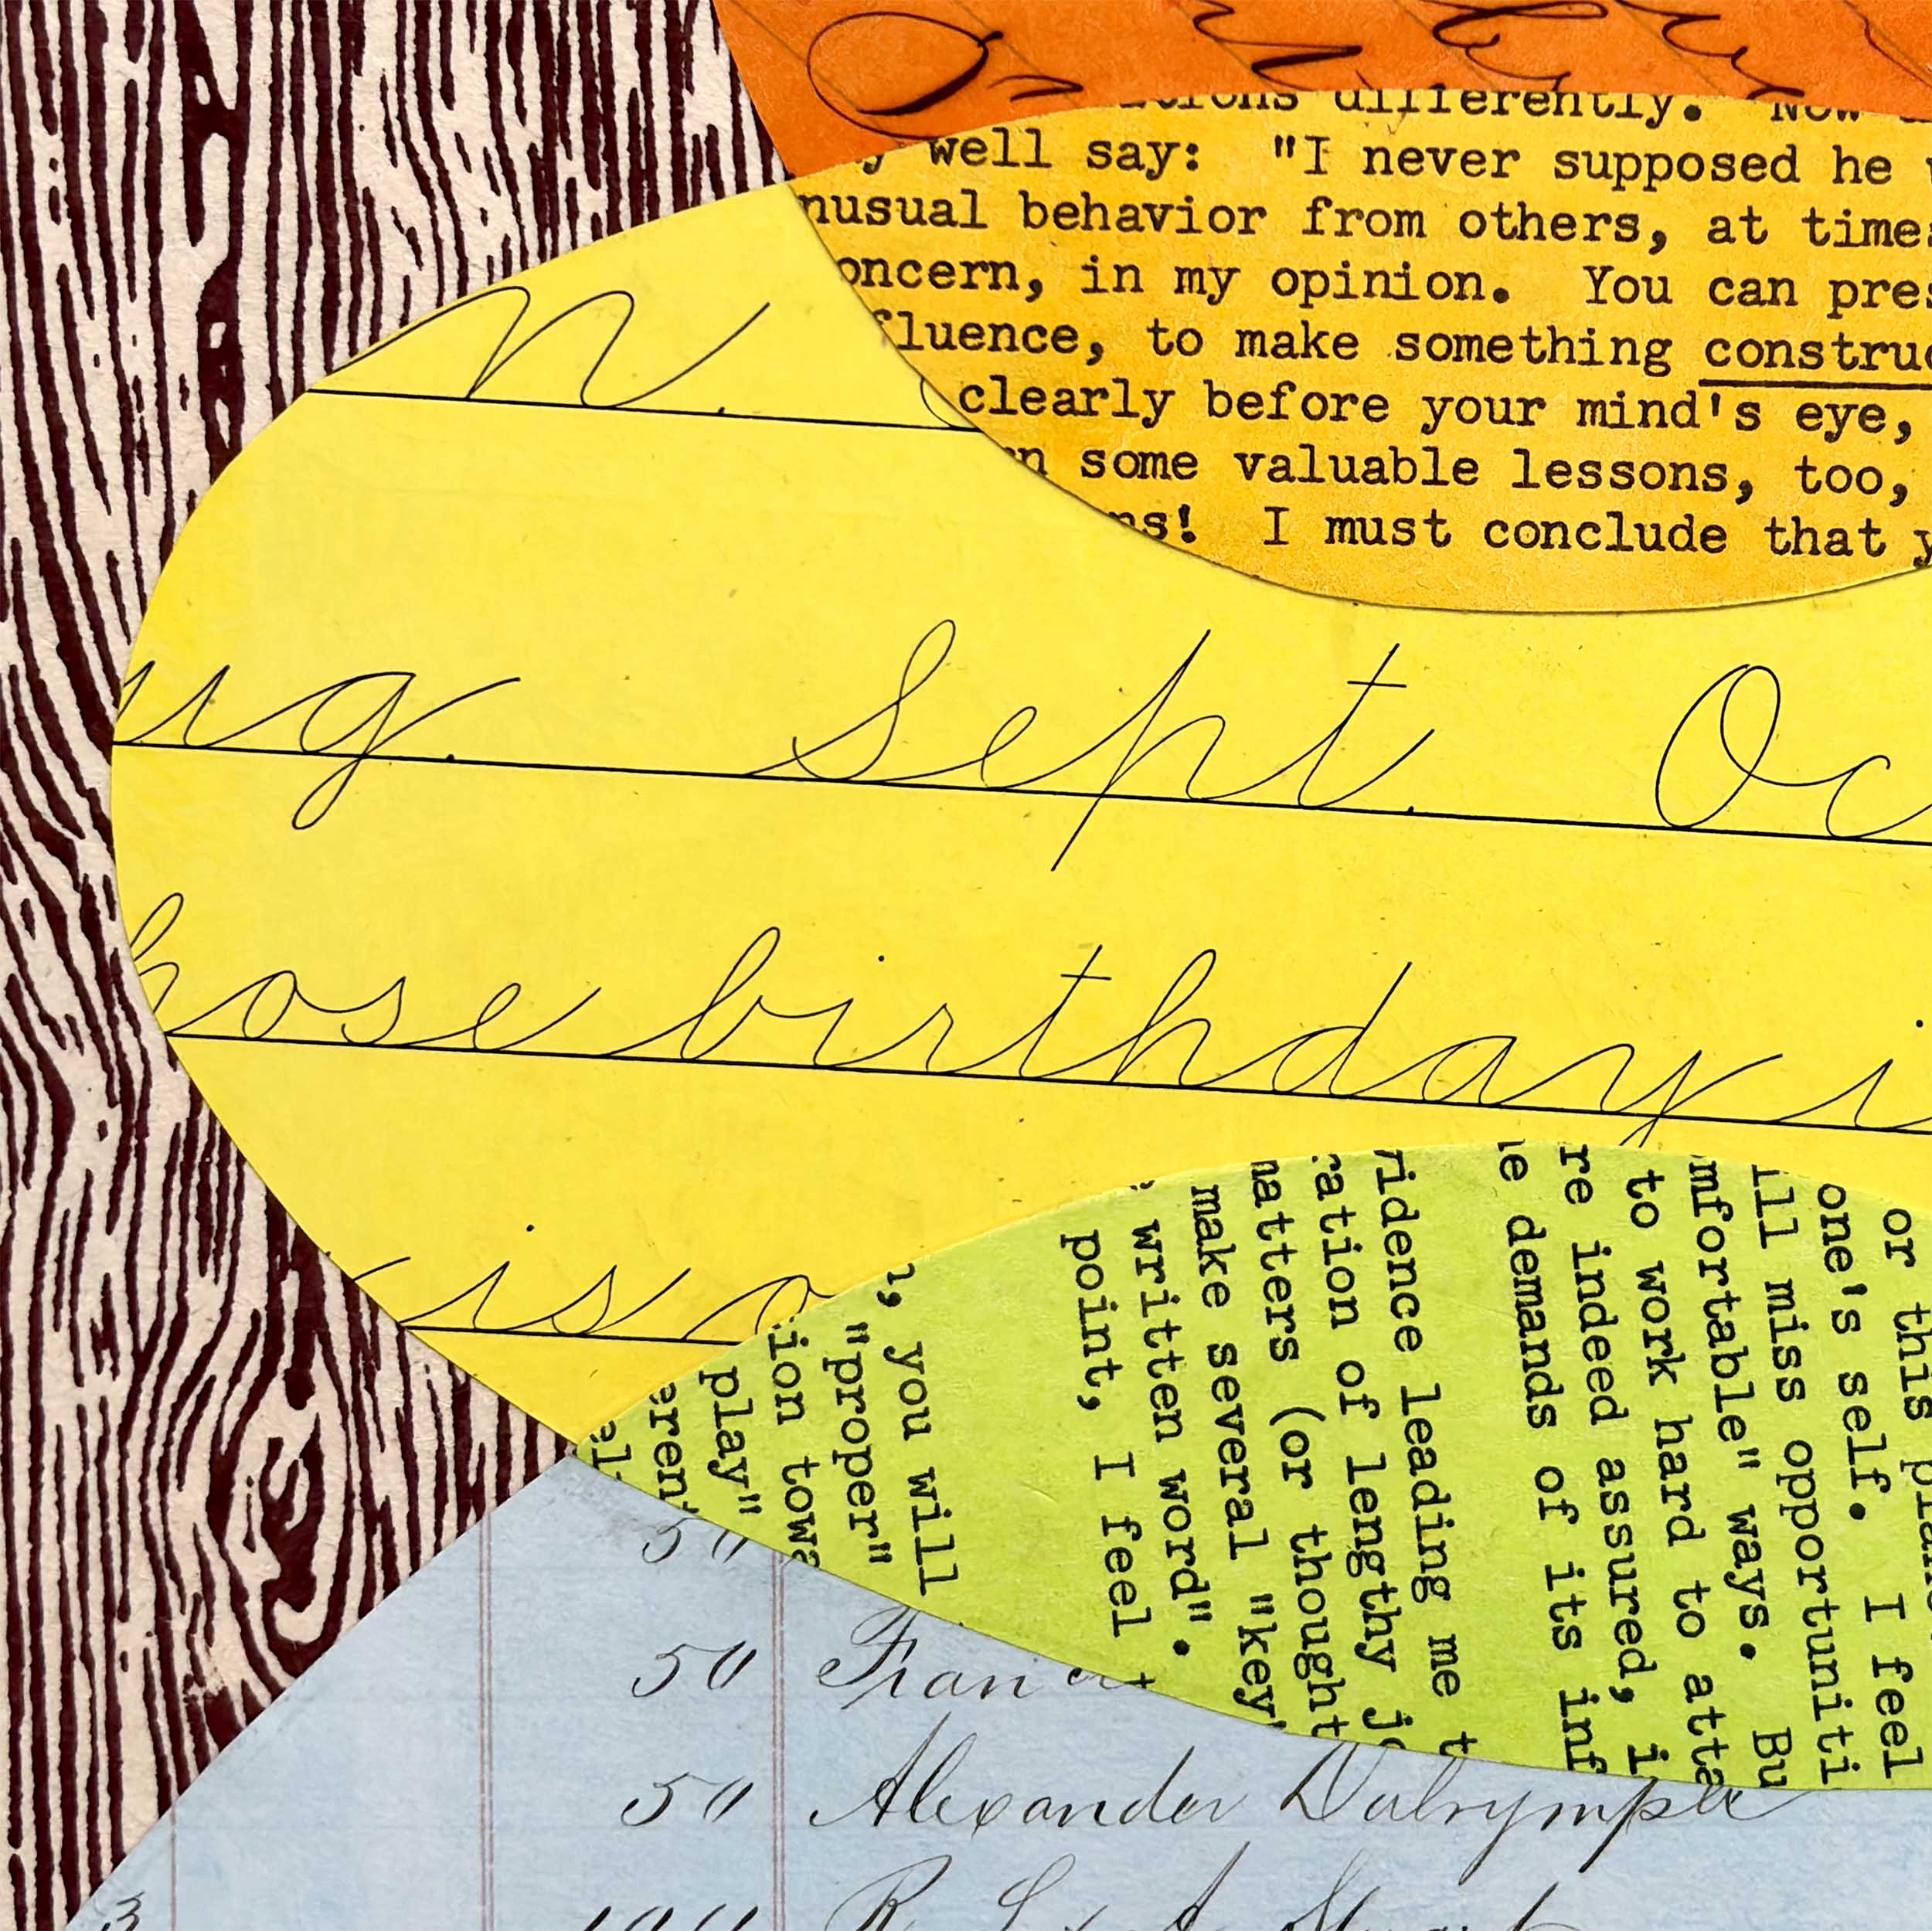 differently. Now
well say: "I never supposed he
nusual behavior from others, at times
oncern, in my opinion. You can pres
fluence, to make something construc
clearly before your mind's eye,
n some valuable lessons, too,
ns! I must conclude that y
n.
ug. Sept. Oc
hose birthday i
is a
or this
one's self. I feel
ill miss opportuniti
mfortable" ways. Bu
to work hard to atta
re indeed assured, i
e demands of its inf
ridence leading me t
ration of lengthy
matters (or thought
make several "key
written word".
point, I feel t
, you will
"proper"
ion towa
play"
eren
el
50
50 Franci
50 Alexander Dalrymple
R. L. & A. Stuart
3